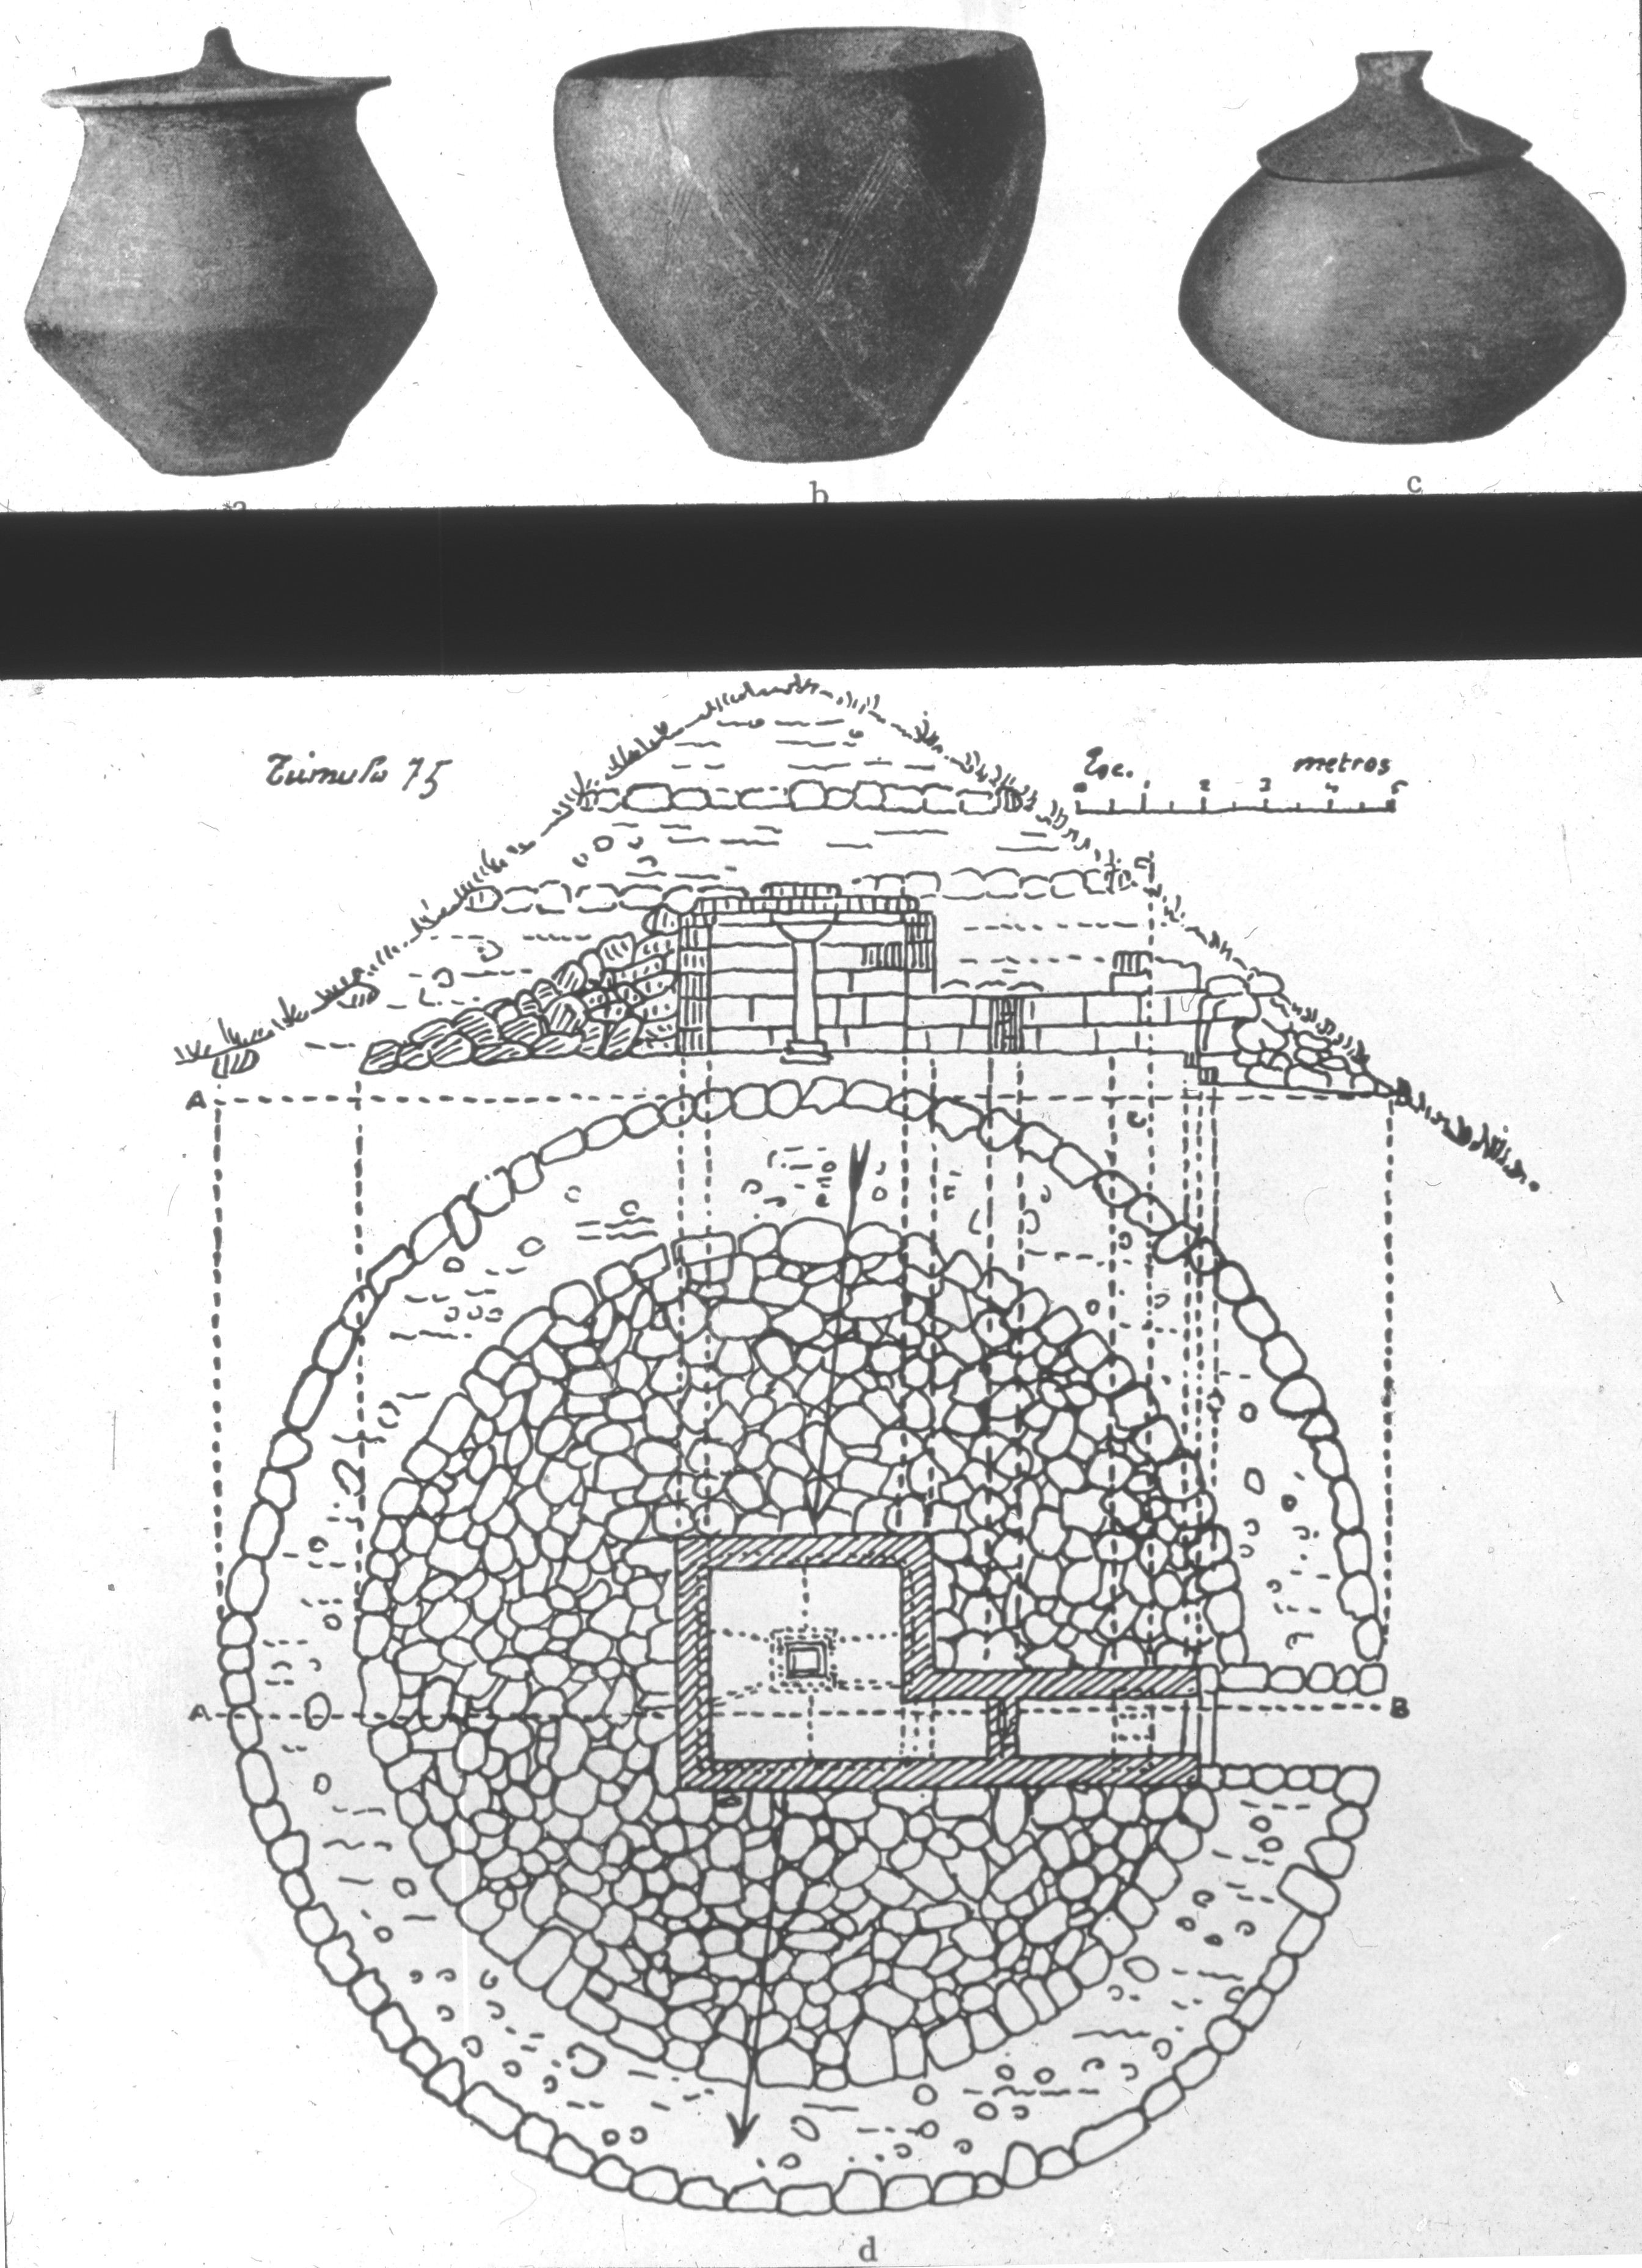 a
b
c
Túmulo 75
Esc. metros
0 1 2 3 4 5
A
B
C
A B
d